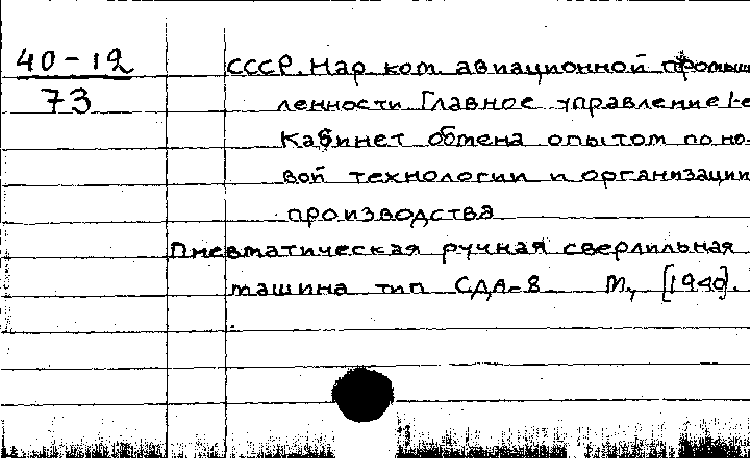 40-12
73
СССР. Нар. ком. авиационной промыш
ленности Главное управление 1-е
Кабинет обмена опытом по но-
вой технологии и организации
производства
Пневматическая ручная сверлильная
машина тип СДА-8 М., [1940].